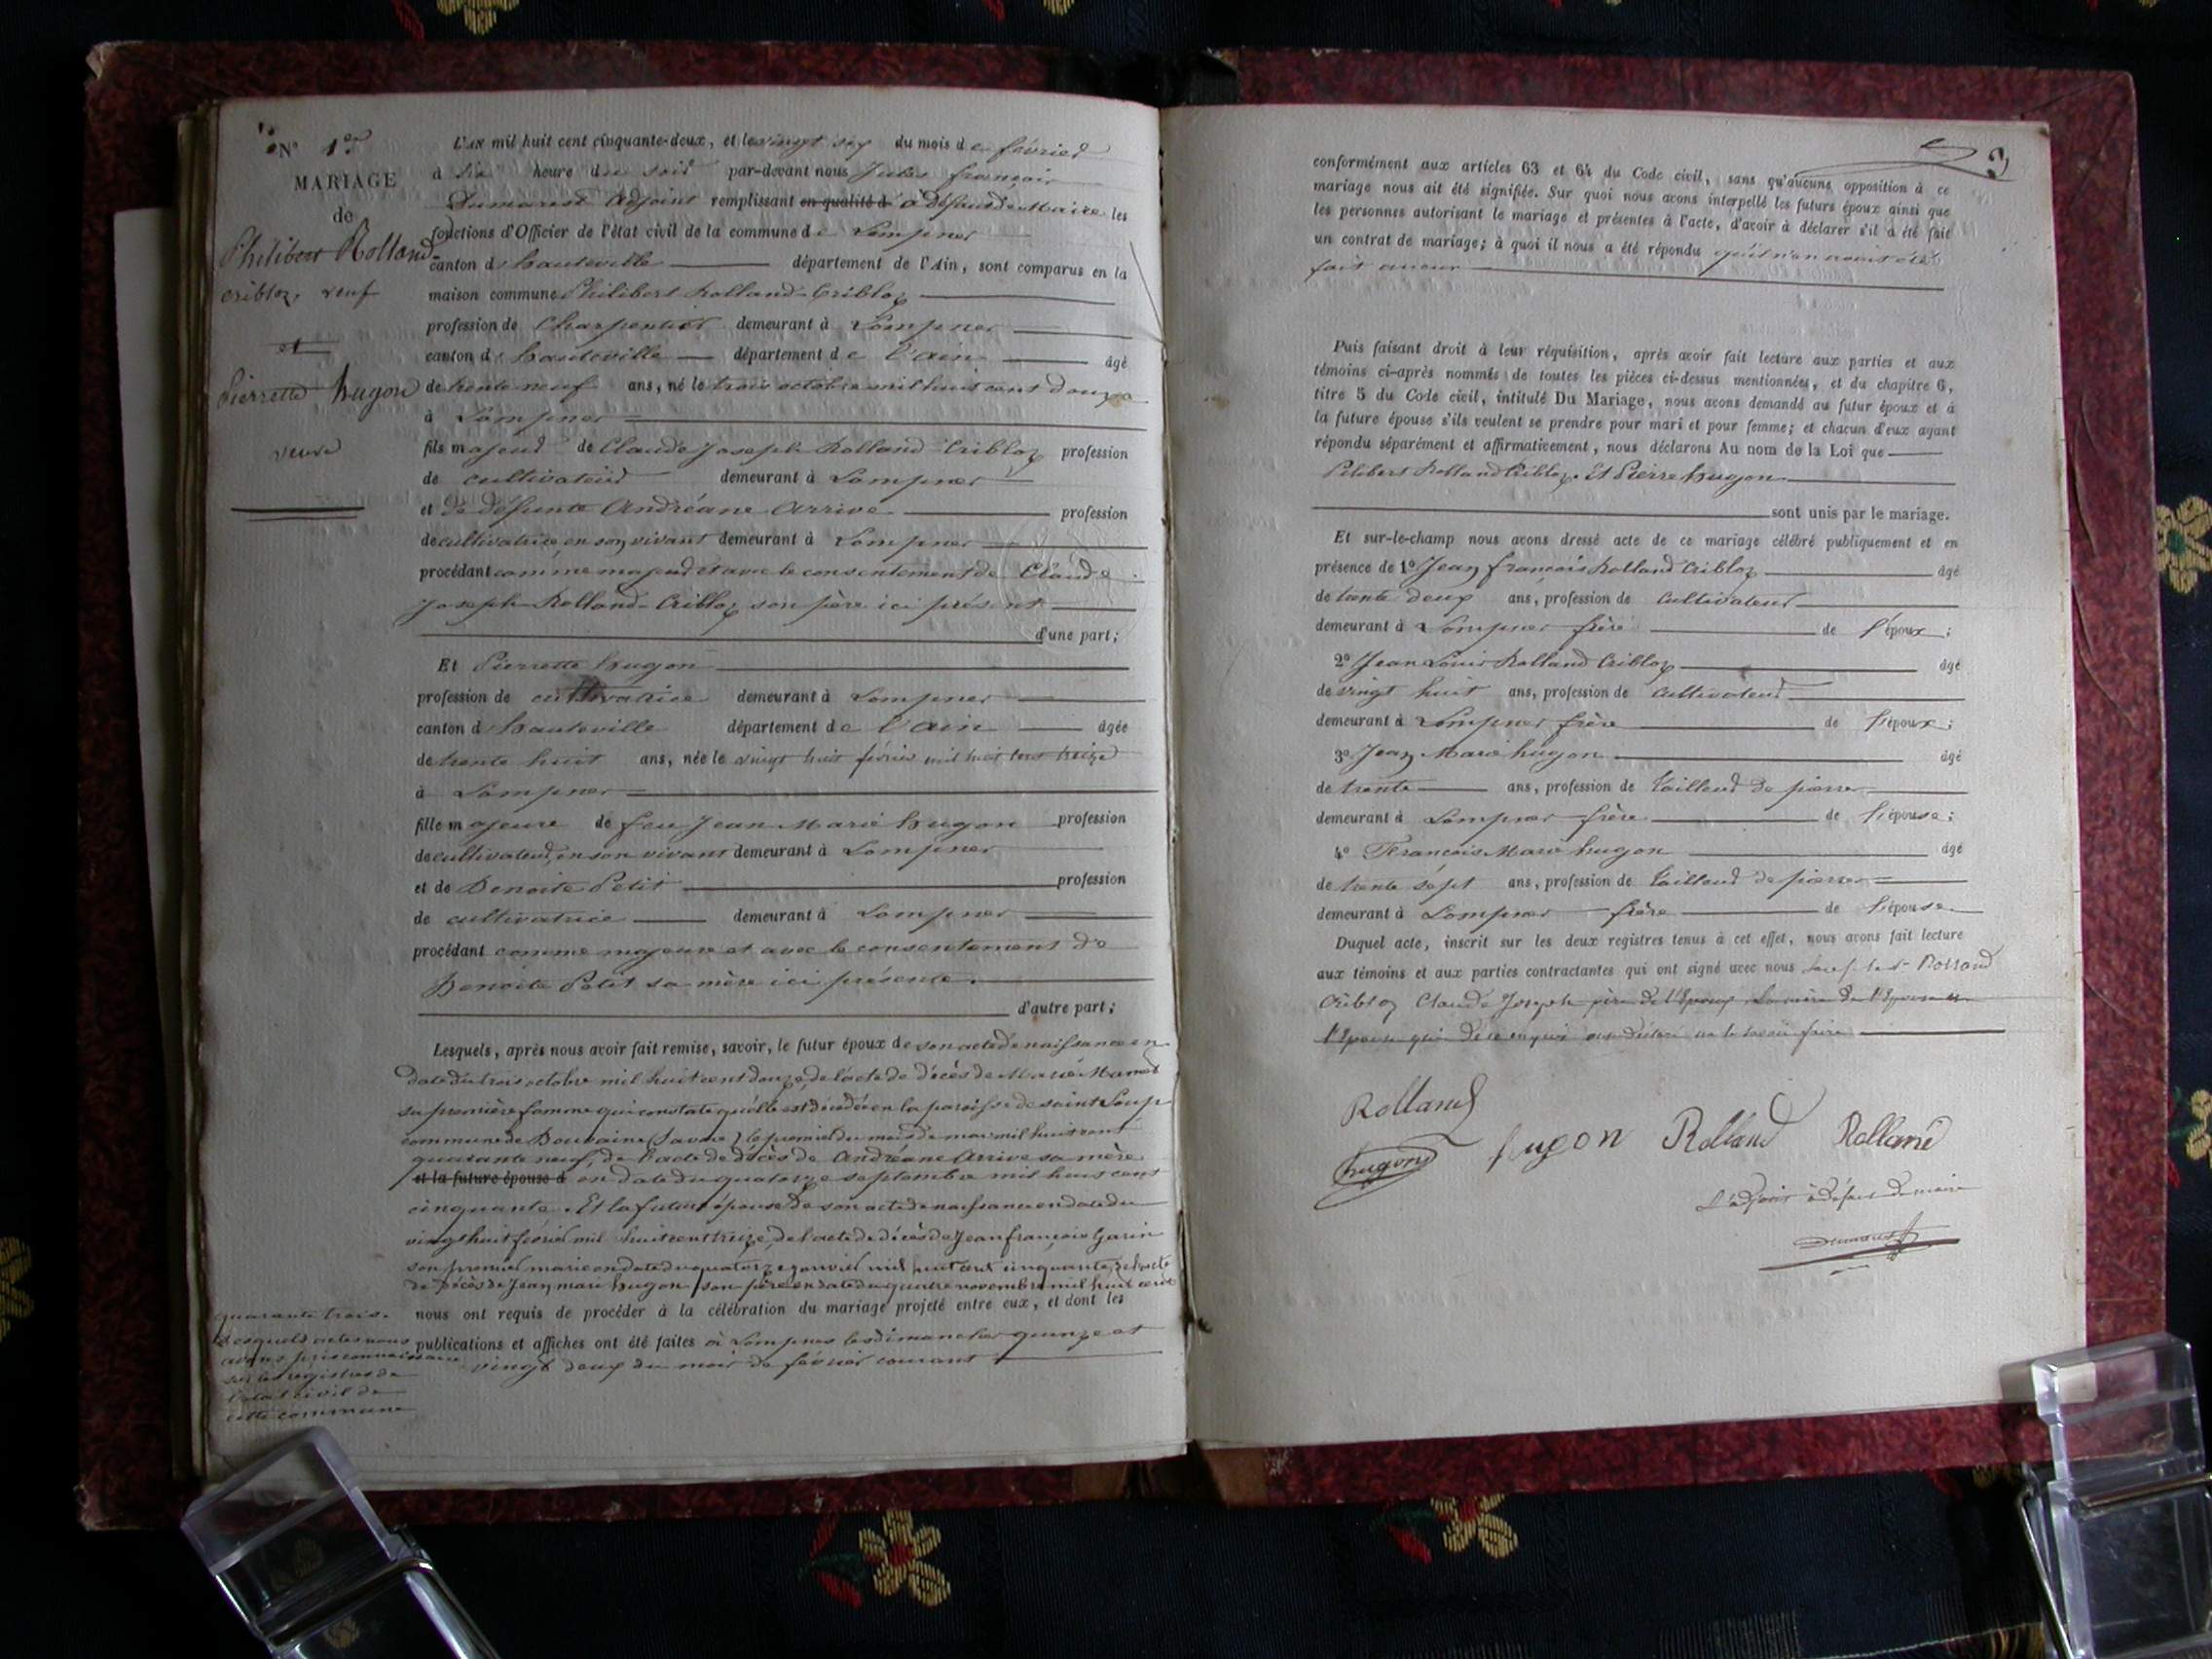 N° 1er
MARIAGE
de
Philibert Rolland-
Cribloz, veuf
et
Pierrette hugon
veuve
L'AN mil huit cent cinquante-deux, et le vingt six du mois de février
à six heure du soir par-devant nous Jules françois
Dumarest Adjoint remplissant en qualité d à défaut de Maire les
fonctions d'Officier de l'état civil de la commune de Lompnes
canton d'hauteville département de l'Ain, sont comparus en la
maison commune Philibert Rolland-Cribloz
profession de Charpentier demeurant à Lompnes
canton d'hauteville département de l'ain âgé
de trente neuf ans, né le trois octobre mil huit cent douze
à Lompnes
fils majeur de Claude Joseph Rolland Cribloz profession
de cultivateur demeurant à Lompnes
et de défunte Andréane Arrive profession
de cultivatrice en son vivant demeurant à Lompnes
procédant comme majeur et avec le consentement de Claude
Joseph Rolland-Cribloz son père ici présent
d'une part;
Et Pierrette hugon
profession de cultivatrice demeurant à Lompnes
canton d'hauteville département de l'ain âgée
de trente huit ans, née le vingt huit février mil huit cent treize
à Lompnes
fille majeure de feu Jean Marie hugon profession
de cultivateur en son vivant demeurant à Lompnes
et de Benoite Petit profession
de cultivatrice demeurant à Lompnes
procédant comme majeure et avec le consentement de
Benoite Petit sa mère ici présente.
d'autre part;
Lesquels, après nous avoir fait remise, savoir, le futur époux de son acte de naissance en
date du trois octobre mil huit cent douze, de l'acte de décès de Marie
sa première femme qui constate qu'elle est décédée en la paroisse de saint Loup
commune de Douvaine (Savoie) le premier du mois de mai mil huit cent
quarante neuf, de l'acte de décès de Andréane Arrive sa mère
et la future épouse d en date du quatorze septembre mil huit cent
cinquante. Et la future épouse de son acte de naissance en date du
vingt huit février mil huit cent treize, de l'acte de décès de Jean françois Garin
son premier marie en date du quatorze janvier mil huit cent cinquante, de l'acte
de décès de Jean marie hugon son père en date du quatre novembre mil huit cent
quarante trois.
desquels actes nous
avons pris connaissance
sur les registres de
l'état civil de
cette commune
nous ont requis de procéder à la célébration du mariage projeté entre eux, et dont les
publications et affiches ont été faites à Lompnes les dimanches quinze et
vingt deux du mois de février courant
conformément aux articles 63 et 64 du Code civil, sans qu'aucune opposition à ce
mariage nous ait été signifiée. Sur quoi nous avons interpellé les futurs époux ainsi que
les personnes autorisant le mariage et présentes à l'acte, d'avoir à déclarer s'il a été fait
un contrat de mariage; à quoi il nous a été répondu qu'il n'en avait été
fait aucun
Puis faisant droit à leur réquisition, après avoir fait lecture aux parties et aux
témoins ci-après nommés de toutes les pièces ci-dessus mentionnées, et du chapitre 6,
titre 5 du Code civil, intitulé Du Mariage, nous avons demandé au futur époux et à
la future épouse s'ils veulent se prendre pour mari et pour femme; et chacun d'eux ayant
répondu séparément et affirmativement, nous déclarons Au nom de la Loi que
Pilibert Rolland Cribloz. Et Pierre hugon
sont unis par le mariage.
Et sur-le-champ nous avons dressé acte de ce mariage célébré publiquement et en
présence de 1° Jean françois Rolland Cribloz âgé
de trente deux ans, profession de cultivateur
demeurant à Lompnes frère de l'époux;
2° Jean Louis Rolland Cribloz âgé
de vingt huit ans, profession de cultivateur
demeurant à Lompnes frère de l'époux;
3° Jean Marie hugon âgé
de trente ans, profession de tailleur de pierre
demeurant à Lompnes frère de l'épouse;
4° François Marie hugon âgé
de trente sept ans, profession de tailleur de pierre
demeurant à Lompnes frère de l'épouse
Duquel acte, inscrit sur les deux registres tenus à cet effet, nous avons fait lecture
aux témoins et aux parties contractantes qui ont signé avec nous sauf le Sr Rolland
Cribloz Claude Joseph père de l'Epoux la mère de l'Epouse et
l'Epouse qui de ce enquis ont déclaré ne le savoir faire
Rolland
hugon
hugon Rolland Rolland
L'adjoint à défaut de maire
Dumarest